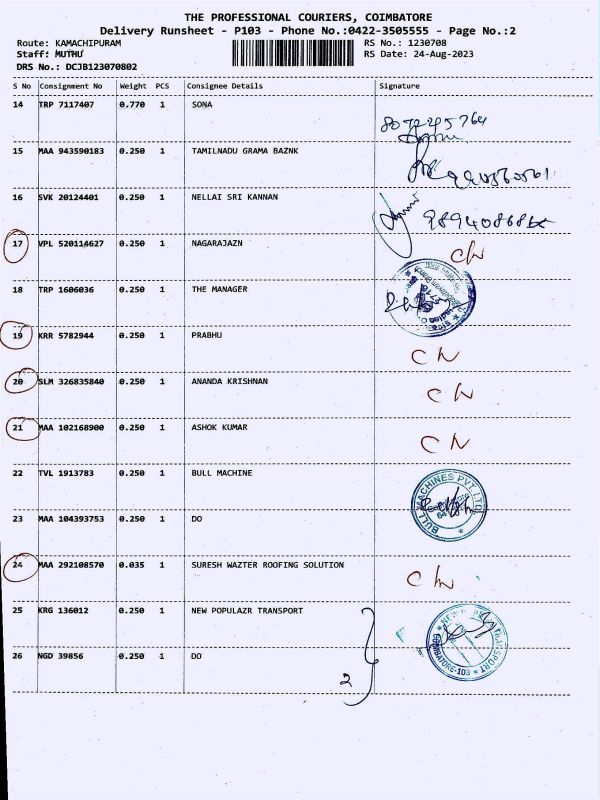 THE PROFESSIONAL COURIERS, COIMBATORE
Delivery Runsheet - P103 - Phone No.:0422-3505555 - Page No.:2
Route: KAMACHIPURAM RS No.: 1230708
Staff: MUTHU RS Date: 24-Aug-2023
DRS No.: DCJB123070802
S No Consignment No Weight PCS Consignee Details Signature
14 TRP 7117407 0.770 1 SONA
15 MAA 943590183 0.250 1 TAMILNADU GRAMA BAZNK
16 SVK 20124401 0.250 1 NELLAI SRI KANNAN
17 VPL 520114627 0.250 1 NAGARAJAZN
18 TRP 1606036 0.250 1 THE MANAGER
19 KRR 5782944 0.250 1 PRABHU
20 SLM 326835840 0.250 1 ANANDA KRISHNAN
21 MAA 102168900 0.250 1 ASHOK KUMAR
22 TVL 1913783 0.250 1 BULL MACHINE BULL MACHINES PVT. LTD
23 MAA 104393753 0.250 1 DO
24 MAA 292108570 0.035 1 SURESH WAZTER ROOFING SOLUTION
25 KRG 136012 0.250 1 NEW POPULAZR TRANSPORT TRANSPORT COIMBATORE-103
26 NGD 39856 0.250 1 DO 2